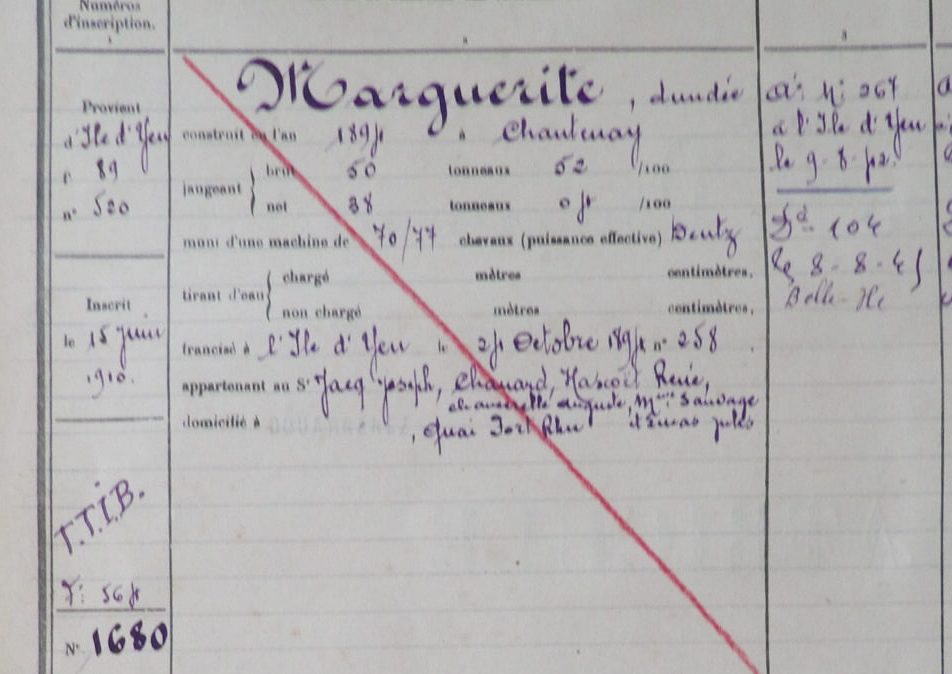 Numéros
d'inscription.
Provient
d'Ile d'Yeu
f° 89
n° 520
Inscrit
le 15 juin
1910.
T.T.I.B.
N° 1680
Marguerite, dundée
construit en l'an 1897 à Chantenay
jaugeant
brut 50 tonneaux 52 /100
net 38 tonneaux 07 /100
muni d'une machine de 70/77 chevaux (puissance effective) Deutz
tirant d'eau
chargé mètres centimètres,
non chargé mètres centimètres,
francisé à l'Ile d'Yeu le 27 Octobre 1897 n° 258
appartenant au Sr Jacq Joseph, Chanard, René,
Auguste, Mme Sauvage
domicilié à , quai
3
à l'Ile d'Yeu
le 9-8-
104
le 8-8-45
Belle-Ile